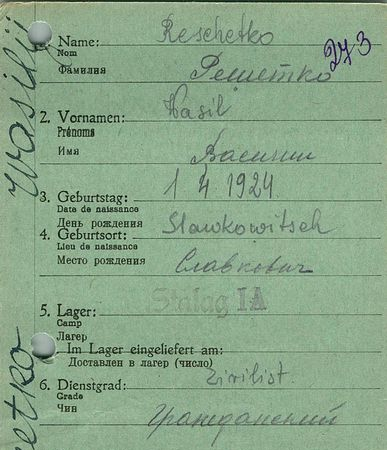 Name: Reschetko
Nom
Фамилия Решетко
273
2. Vornamen: Wasil
Prénoms
Имя Василий
3. Geburtstag: 1 4 1924
Date de naissance
День рождения
4. Geburtsort: Slawkowitsch
Lieu de naissance
Место рождения Славкович
5. Lager: Stalag IA
Camp
Лагерь
Im Lager eingeliefert am:
Доставлен в лагерь (число)
6. Dienstgrad: Zivilist
Grade
Чин Гражданский
Wasilij
etko